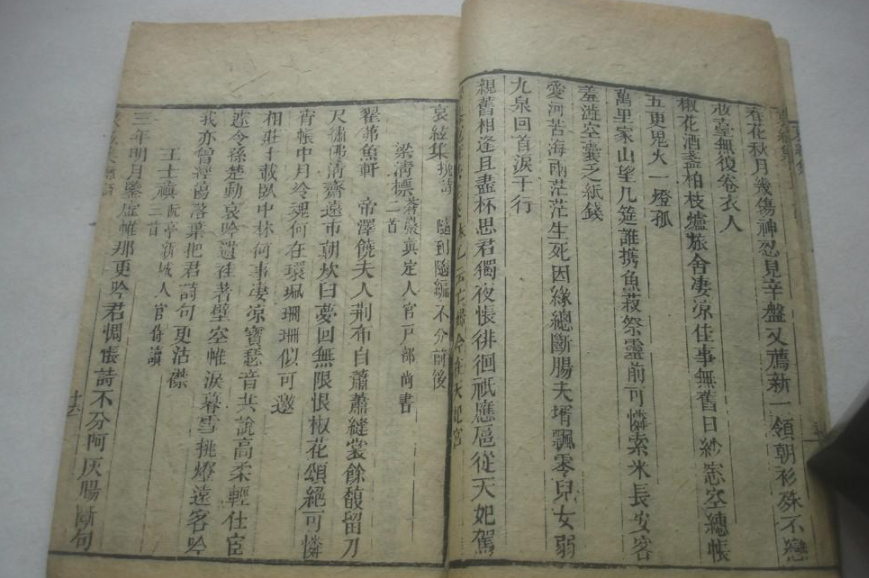 春花秋月幾傷神忍見辛盤又薦新一領朝衫殊不戀
妝臺無復卷衣人
椒花酒盞柏枝爐旅舍凄凉佳事無舊日紗窓空繐帳
五更鬼火一燈孤
萬里家山望几筵誰携魚菽祭靈前可憐索米長安客
羞澁空囊乏紙錢
愛河苦海兩茫茫生死因緣總斷腸夫壻飄零兒女弱
九泉回首淚千行
親舊相逢且盡杯思君獨夜悵徘徊祇應扈從天妃駕
哀絃集
隨到隨編不分前後
梁清標蒼巖真定人官戸部尚書
二首
翟茀魚軒 帝澤饒夫人荆布自蕭蕭縫裳餘馥留刀
尺繡佛清齋遠市朝炊臼夢回無限悵椒花頌絕可憐
宵帳中月冷魂何在環珮珊珊似可邀
相莊十載臥中林何事凄凉寳瑟音共說高柔輕仕宦
遽令孫楚動哀吟遺
空帷淚暮雪挑燈遠客吟
我亦曾
落葉把君詩句更沾襟
王士禛阮亭新城人官侍讀
二首
三年明月鑒虛帷那更吟君惆悵詩不分阿
腸斷句